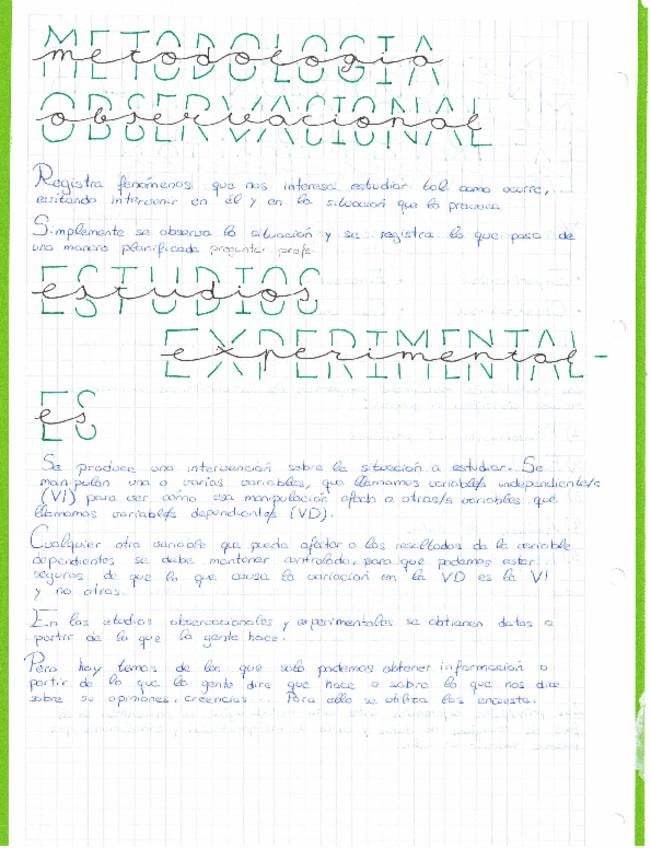 METODOLOGIA
metodologia
OBSERVACIONAL
observacional
Registra fenómenos que nos interesa estudiar tal como ocurre,
evitando intervenir en él y en la situación que lo provoca
Simplemente se observa la situación y se registra lo que pasa de
una manera planificada preguntar profe
ESTUDIOS
estudios
EXPERIMENTAL-
experimental
ES
es
Se produce una intervención sobre la situación a estudiar. Se
manipulan una o varias variables, que llamamos variable/s independiente/s
(VI) para ver cómo esa manipulación afecta a otras/s variables que
llamamos variable/s dependiente/s (VD).
Cualquier otra variable que pueda afectar a los resultados de la variable
dependientes se debe mantener controlada, para que podamos estar
seguros de que lo que causa la variación en la VD es la VI
y no otras.
En los etudios observacionales y experimentales se obtienen datos a
partir de lo que la gente hace.
Pero hay temas de los que solo podemos obtener información a
partir de lo que la gente dice que hace o sobre lo que nos dice
sobre su opiniones, creencias... Para ello se utiliza las encuesta.